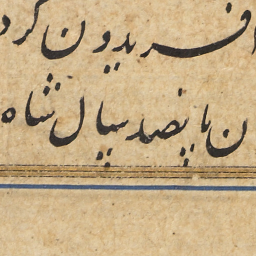 افریدون کرد
ن پانصد سال شاه